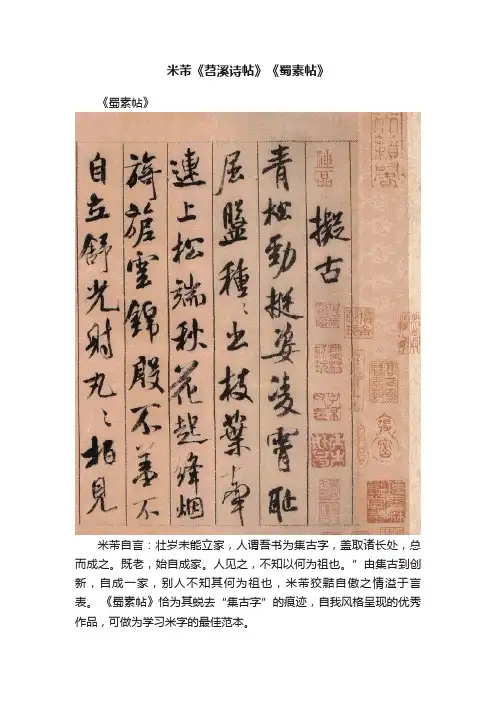 米芾《苕溪诗帖》《蜀素帖》
《蜀素帖》
擬古
青松勁挺姿凌霄恥
屈盤種〻出枝葉牽
連上松端秋花起絳烟
旖旎雲錦殷不羞不
自立舒光射丸〻柏見
米芾自言：壮岁未能立家，人谓吾书为集古字，盖取诸长处，总
而成之。既老，始自成家。人见之，不知以何为祖也。”由集古到创
新，自成一家，别人不知其何为祖也，米芾狡黠自傲之情溢于言
表。《蜀素帖》恰为其蜕去“集古字”的痕迹，自我风格呈现的优秀
作品，可做为学习米字的最佳范本。